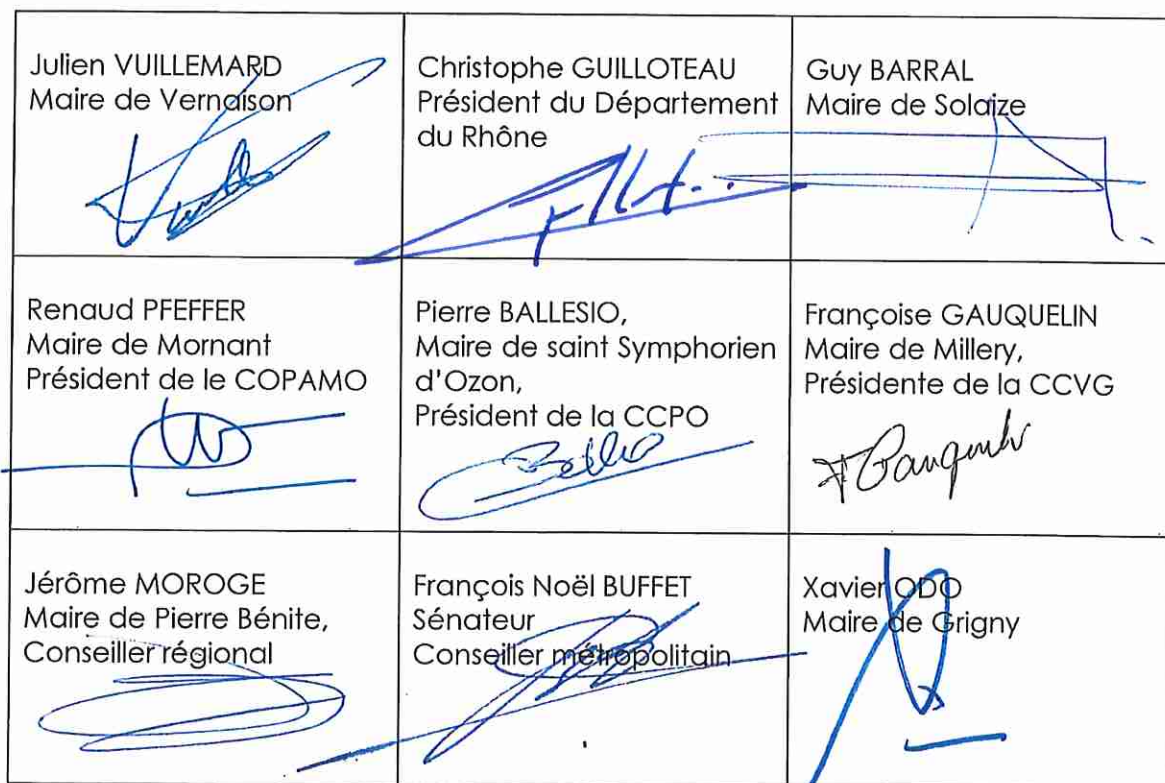 Julien VUILLEMARD
Maire de Vernaison
Christophe GUILLOTEAU
Président du Département
du Rhône
Guy BARRAL
Maire de Solaize
Renaud PFEFFER
Maire de Mornant
Président de le COPAMO
Pierre BALLESIO,
Maire de saint Symphorien
d'Ozon,
Président de la CCPO
Françoise GAUQUELIN
Maire de Millery,
Présidente de la CCVG
Jérôme MOROGE
Maire de Pierre Bénite,
Conseiller régional
François Noël BUFFET
Sénateur
Conseiller métropolitain
Xavier ODO
Maire de Grigny